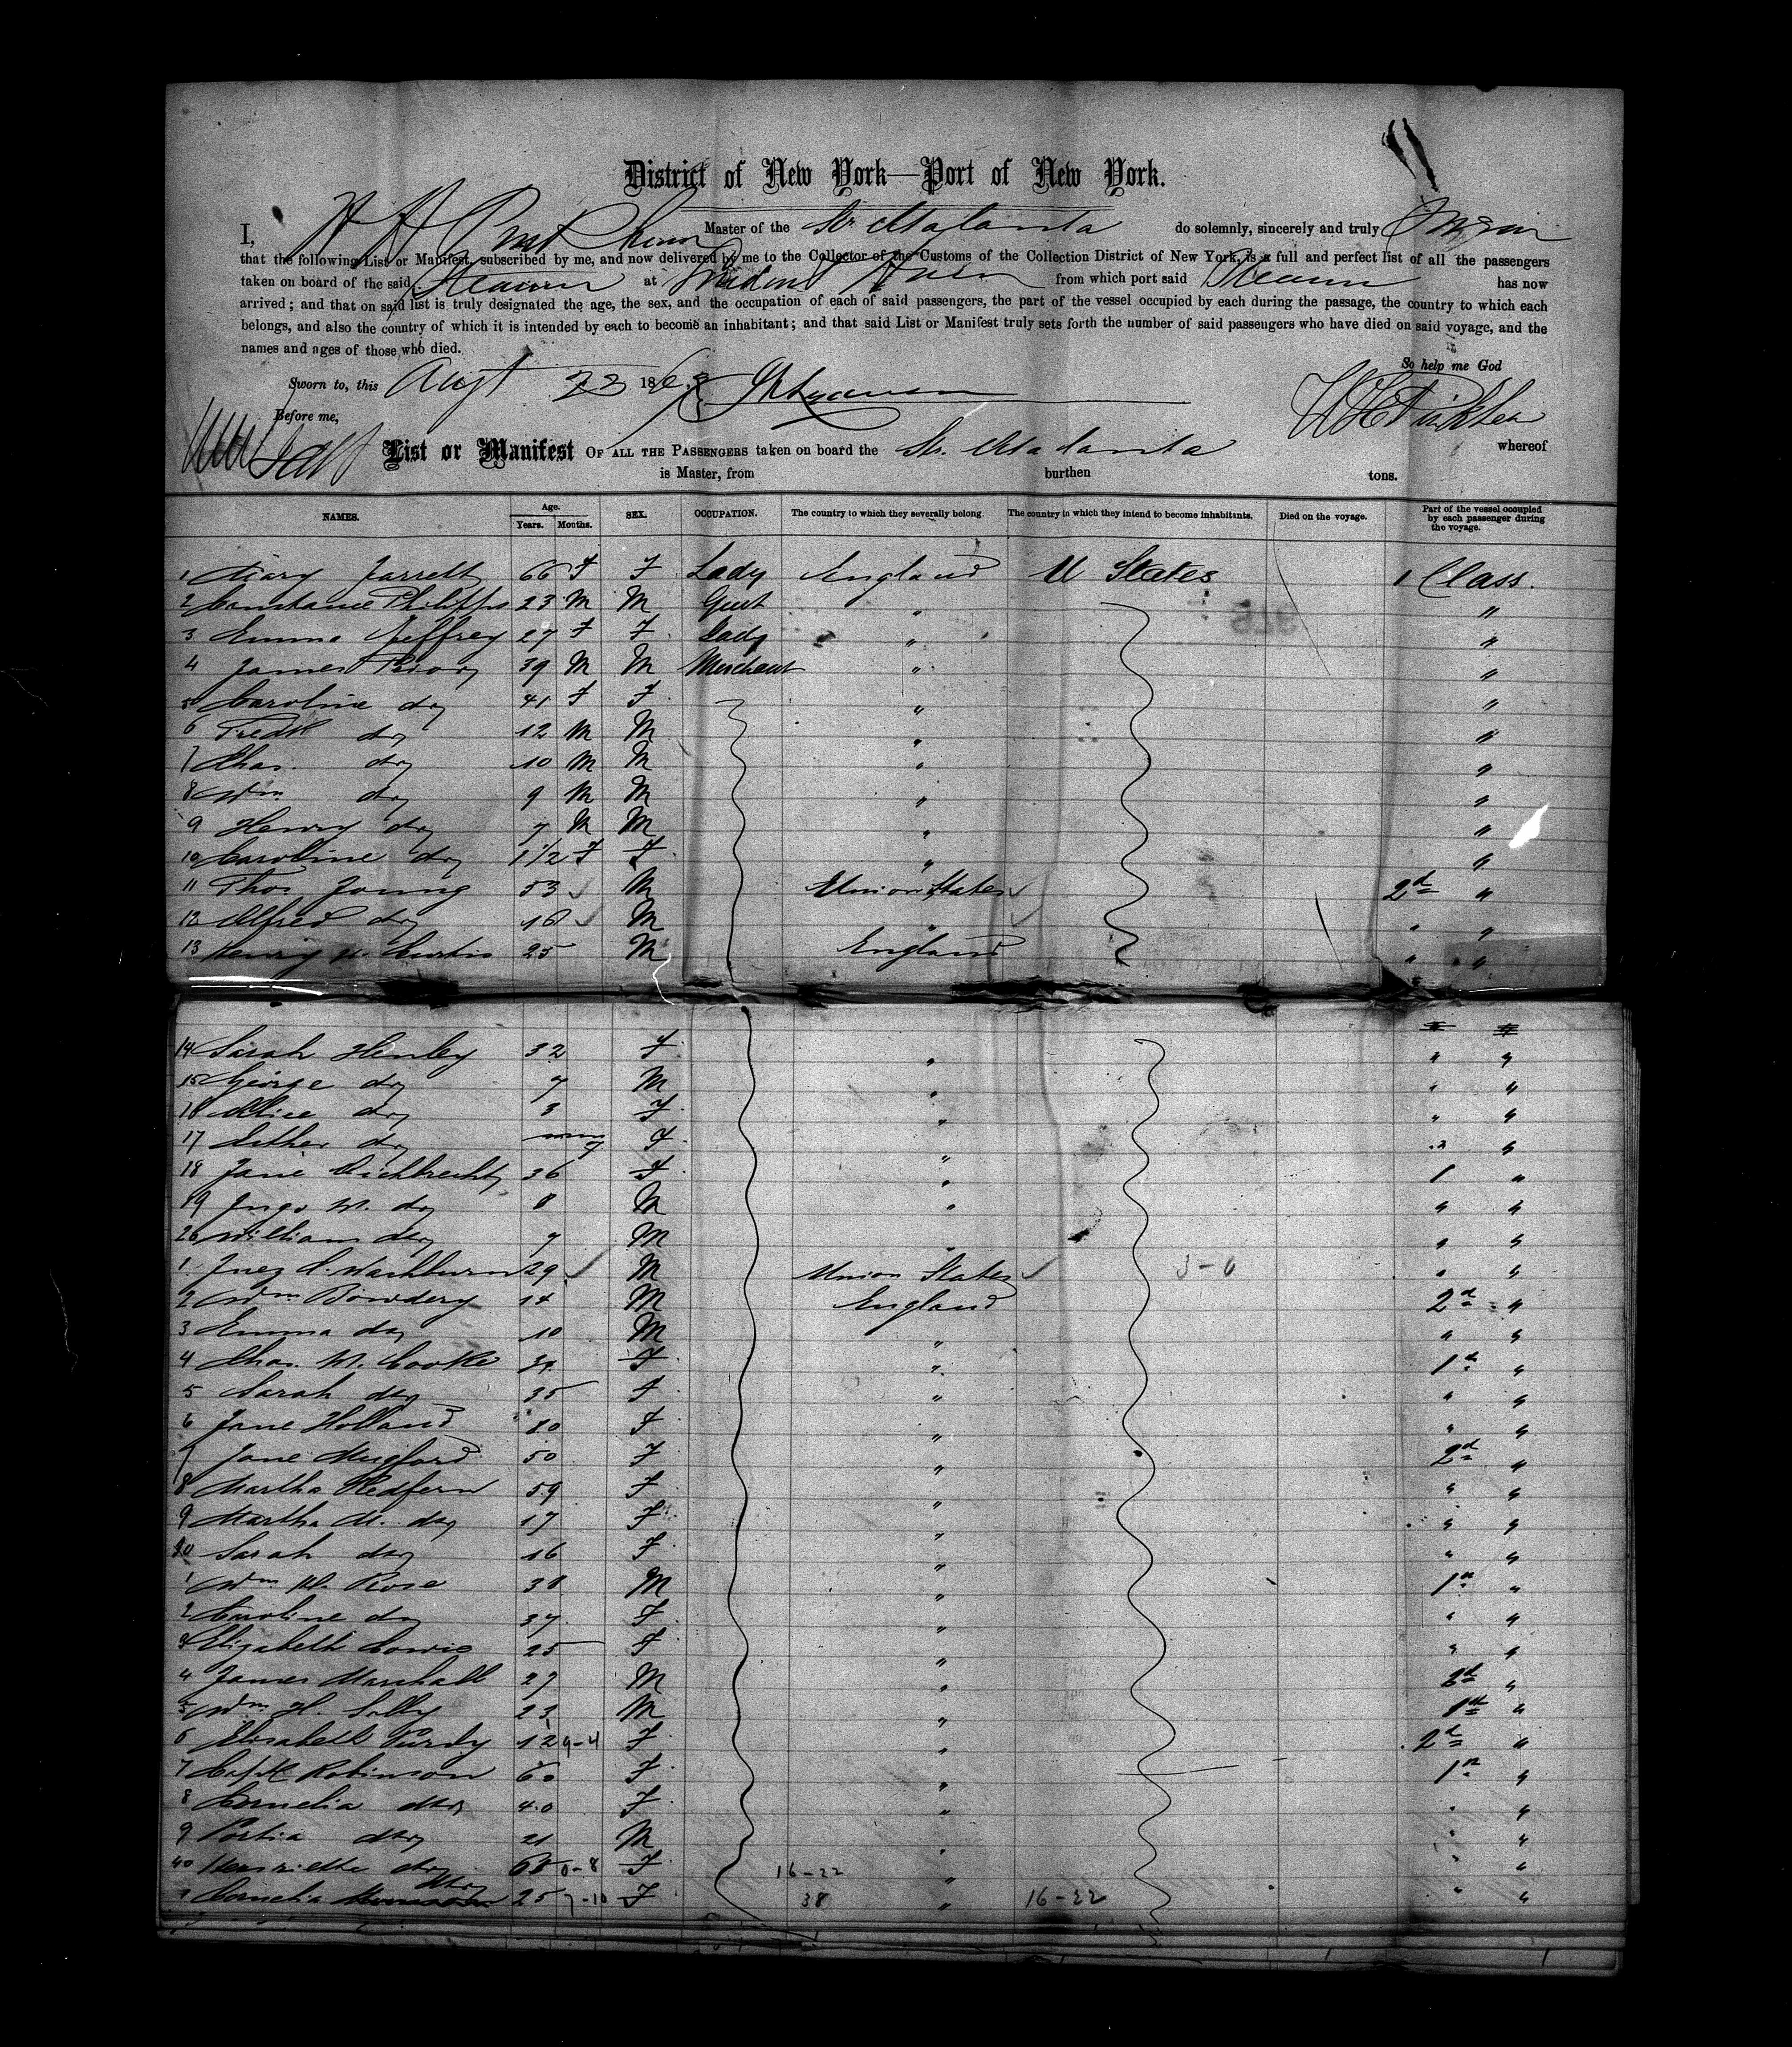 District of New York—Port of New York.
I, Master of the Sr. Atalanta do solemnly, sincerely and truly
that the following List or Manifest, subscribed by me, and now delivered by me to the Collector of the Customs of the Collection District of New York, is a full and perfect list of all the passengers
taken on board of the said Steamer at from which port said Steamer has now
arrived; and that on said list is truly designated the age, the sex, and the occupation of each of said passengers, the part of the vessel occupied by each during the passage, the country to which each
belongs, and also the country of which it is intended by each to become an inhabitant; and that said List or Manifest truly sets forth the number of said passengers who have died on said voyage, and the
names and ages of those who died.
So help me God
Sworn to, this Augt 22 186
Before me,
List or Manifest OF ALL THE PASSENGERS taken on board the Sr. Atalanta whereof
is Master, from burthen tons.
NAMES. Age. Years. Months. SEX. OCCUPATION. The country to which they severally belong. The country in which they intend to become inhabitants. Died on the voyage. Part of the vessel occupied by each passenger during the voyage.
1 Mary Jarrett 66 F F Lady England U States 1 Class.
2 Constance Philipps 23 M M Gent " "
3 Emma Jeffrey 27 F F Lady " "
4 James 39 M M Merchant " "
5 Caroline do 41 F F " "
6 Fredk do 12 M M " "
7 Chas. do 10 M M " "
8 Wm do 9 M M " "
9 Henry do 7 M M " "
10 Caroline do 1 1/2 F F " "
11 Thos Young 53 M Union States 2d "
12 Alfred do 16 M " " "
13 Henry Curtis 25 M England " "
14 Sarah Henley 32 F " " "
15 George do 7 M " " "
16 Alice do 3 F " " "
17 Esther do 7 F " " "
18 Jane 36 F " 1 "
19 do 8 M " " "
20 William do 7 M " " "
1 Washburn 29 M Union States 3-0 " "
2 Wm Bowdery 14 M England 2d "
3 Emma do 10 M " " "
4 Chas. W. Cooke F " 1st "
5 Sarah do 35 F " " "
6 Jane Holland F " " "
7 Jane Mugford 50 F " 2d "
8 Martha Redfern 59 F " " "
9 Martha M. do 17 F " " "
30 Sarah do 16 F " " "
1 Wm H. Rose 38 M " 1st "
2 Caroline do 37 F " " "
3 Elizabeth Cowie 25 F " " "
4 James Marshall 27 M " 2d "
5 Wm H. Selby 23 M " 1st "
6 Elisabeth Purdy 12 9-4 F " 2d "
7 Robinson 60 F " 1st "
8 Cornelia do 40 F " " "
9 Portia do 21 M " " "
40 Henriette do 0-8 F 16-22 " " "
1 Cornelia do 25 7-10 F 38 " 16-22 " "